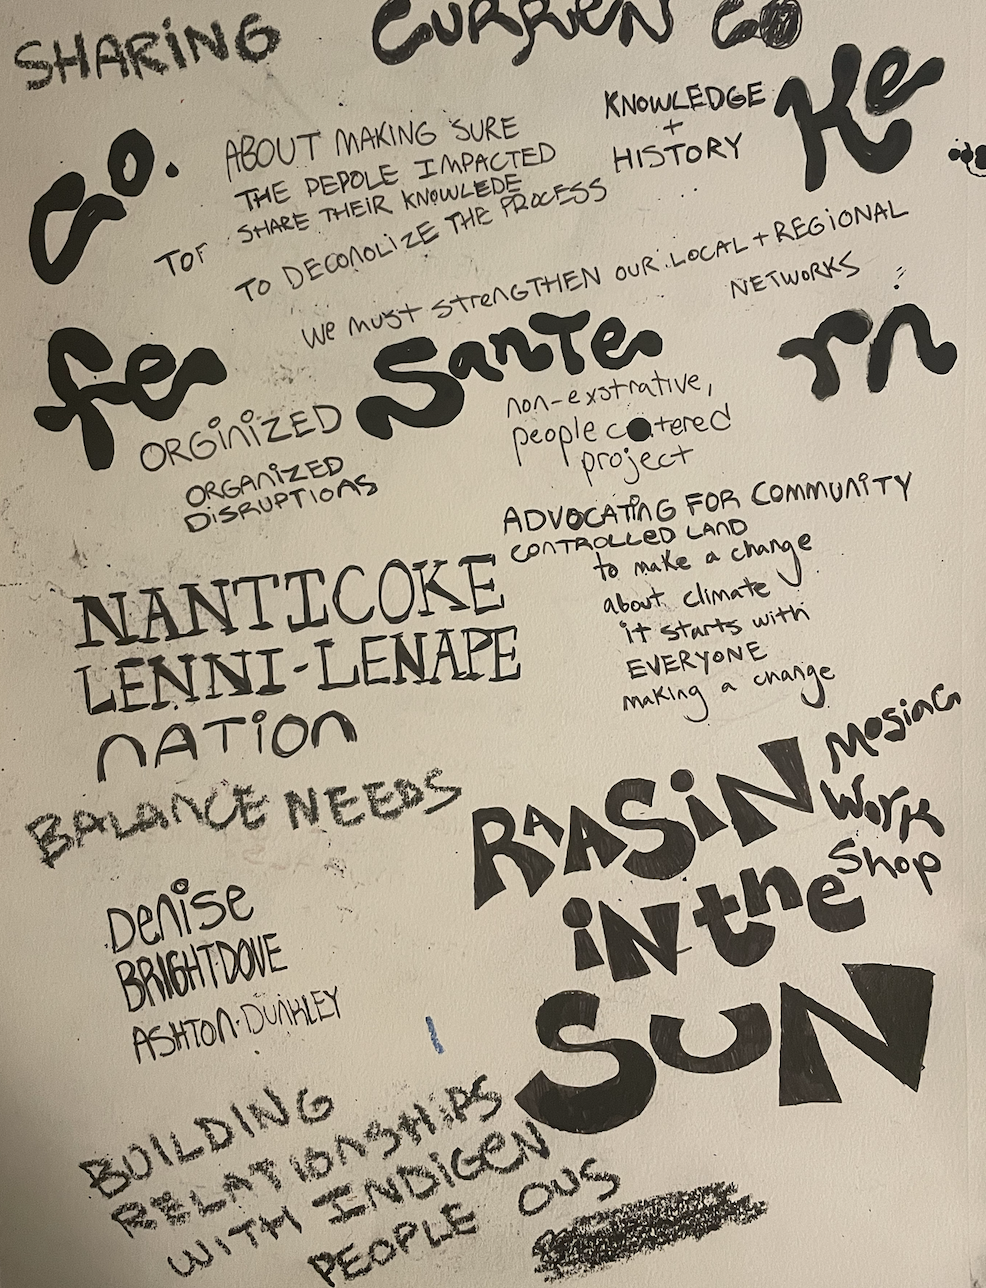 SHARING
CURREN CO
KNOWLEDGE
+
HISTORY
Ke
Co.
ABOUT MAKING SURE
THE PEPOLE IMPACTED
SHARE THEIR KNOWLEDE
TOF
TO DECONOLIZE THE PROCESS
We must strENGTHEN OUR LOCAL + REGIONAL
NETWORKS
fe
Sante
rn
ORGINIZED
ORGANIZED
DISRUPTIONS
non-exstrative,
people
project
ADVOCATING FOR COMMUNITY
CONTROLLED LAND
to make a change
about climate
it starts with
EVERYONE
making a change
NANTICOKE
LENNI-LENAPE
NATION
BALANCE NEEDS
Denise
BRIGHTDOVE
ASHTON-DUNKLEY
RAASIN
IN the
SUN
Mosiac
Work
Shop
BUILDING
RELATIONSHIPS
WITH INDIGEN
OUS
PEOPLE